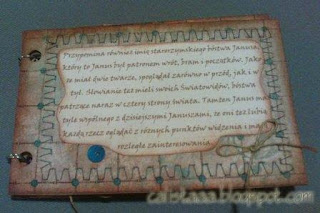 Przypomina również imię starorzymskiego bóstwa Janusa,
który to Janus był patronem wrót, bram i początków. Jako
że miał dwie twarze, spoglądał zarówno w przód, jak i w
tył. Słowianie też mieli swoich Światowidów, bóstwa
patrzące naraz w cztery strony świata. Tamten Janus ma
tyle wspólnego z dzisiejszymi Januszami, że oni też lubią
każdą rzecz oglądać z różnych punktów widzenia i mają
rozległe zainteresowania.
blogspot.com